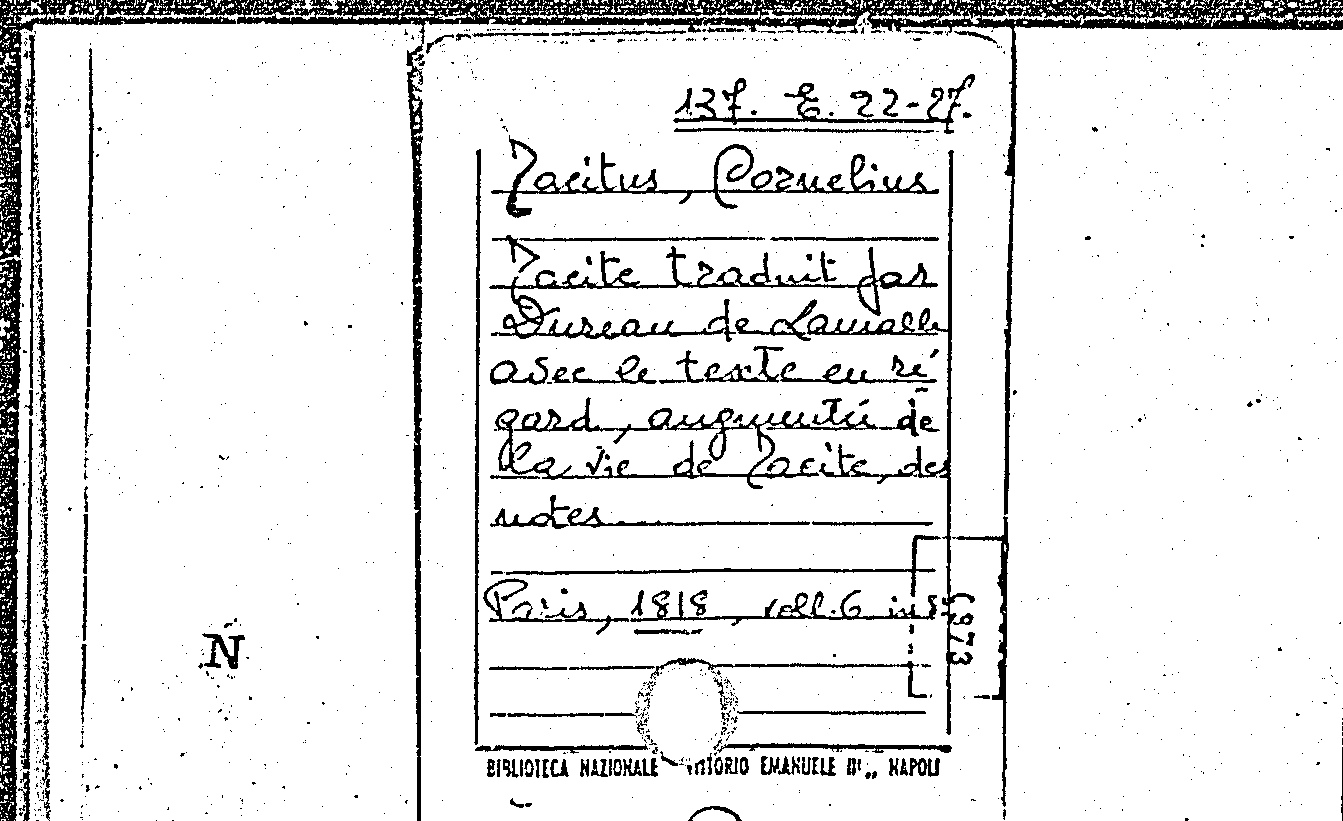 137. E. 22-27.
Tacitus, Cornelius
Tacite traduit par
Dureau de Lamalle
avec le texte en ré
gard, augmentée de
la vie de Tacite, des
notes
Paris, 1818, voll. 6 in 8º
1973
N
BIBLIOTECA NAZIONALE VITTORIO EMANUELE III„ NAPOLI